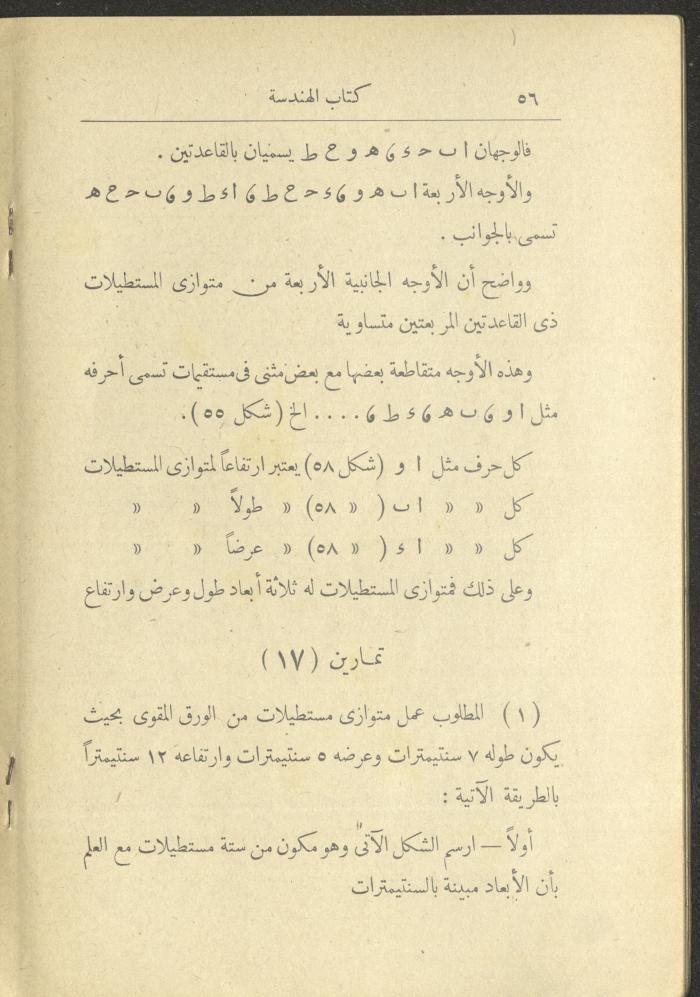 ٥٦ كتاب الهندسة
فالوجهان ا ب ح ء ، ه و ح ط يسميان بالقاعدتين .
والأوجه الأربعة ا ب ه و ، ء ح ح ط ، ا ء ط و ، ب ح ح ه
تسمى بالجوانب .
وواضح أن الأوجه الجانبية الأربعة من متوازى المستطيلات
ذى القاعدتين المربعتين متساوية
وهذه الأوجه متقاطعة بعضها مع بعض مثنى فى مستقيمات تسمى أحرفه
مثل ا و ، ب ه ، ء ط ، .... الخ (شكل ٥٥).
كل حرف مثل ا و (شكل ٥٨) يعتبر ارتفاعاً لمتوازى المستطيلات
كل » » ا ب ( » ٥٨) » طولاً » »
كل » » ا ء ( » ٥٨) » عرضاً » »
وعلى ذلك فمتوازى المستطيلات له ثلاثة أبعاد طول وعرض وارتفاع
تمارين (١٧)
(١) المطلوب عمل متوازى مستطيلات من الورق المقوى بحيث
يكون طوله ٧ سنتيمترات وعرضه ٥ سنتيمترات وارتفاعه ١٢ سنتيمتراً
بالطريقة الآتية :
أولاً — ارسم الشكل الآتى وهو مكون من ستة مستطيلات مع العلم
بأن الأبعاد مبينة بالسنتيمترات